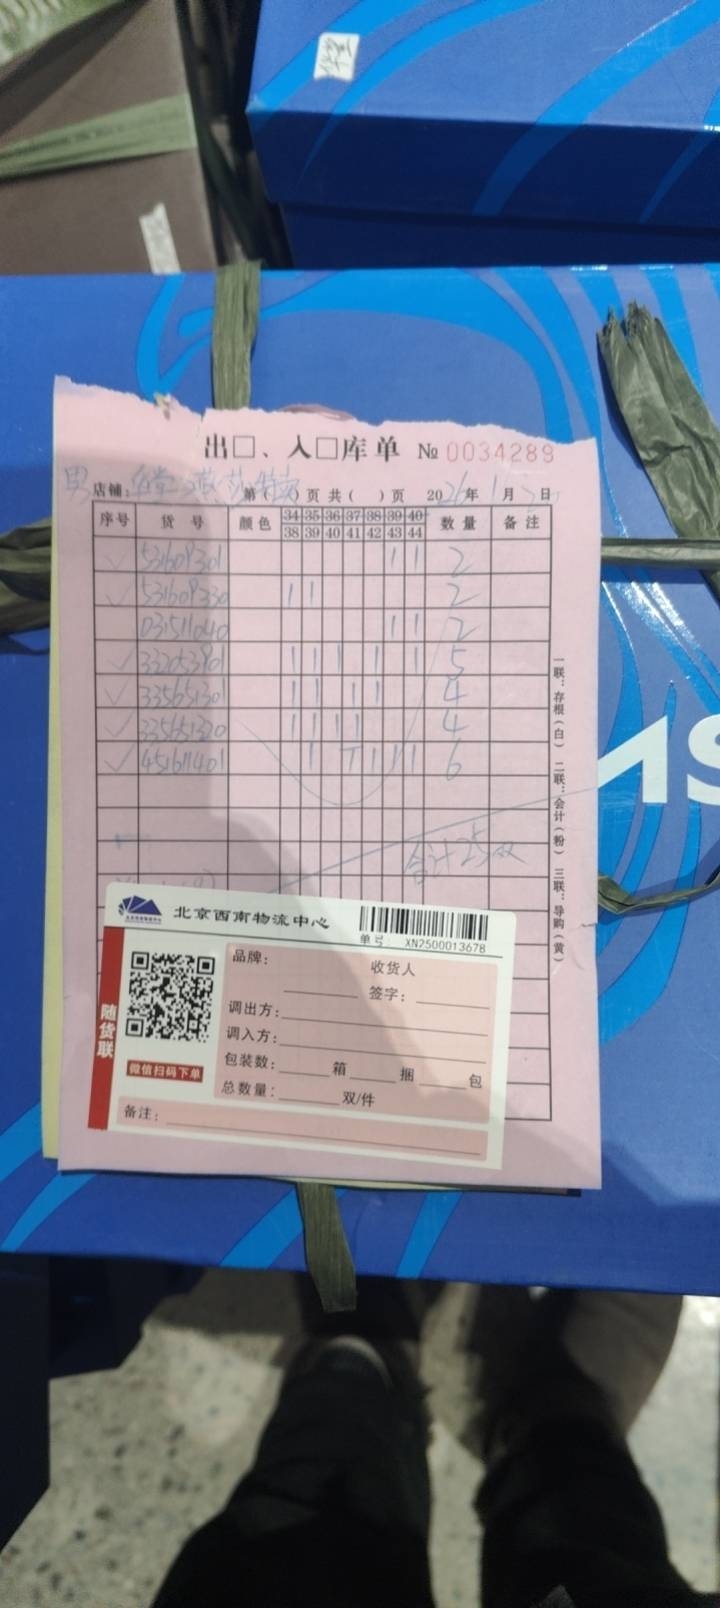 华堂
出□、入□库单 № 0034289
男 店铺: 华堂 第( )页 共( )页 2026年1月 日
序号 货号 颜色 34 35 36 37 38 39 40 数量 备注
38 39 40 41 42 43 44
531609301 1 1 2
531609330 1 1 2
031511040 1 1 2
332053901 1 1 1 1 1 5
335651301 1 1 1 1 4
335651320 1 1 1 4
451611401 1 1 1 1 1 6
合计25双
一联:存根(白) 二联:会计(粉) 三联:导购(黄)
北京西南物流中心
单号 XN2500013678
随货联
微信扫码下单
品牌: 收货人
签字:
调出方:
调入方:
包装数: 箱 捆 包
总数量: 双/件
备注: